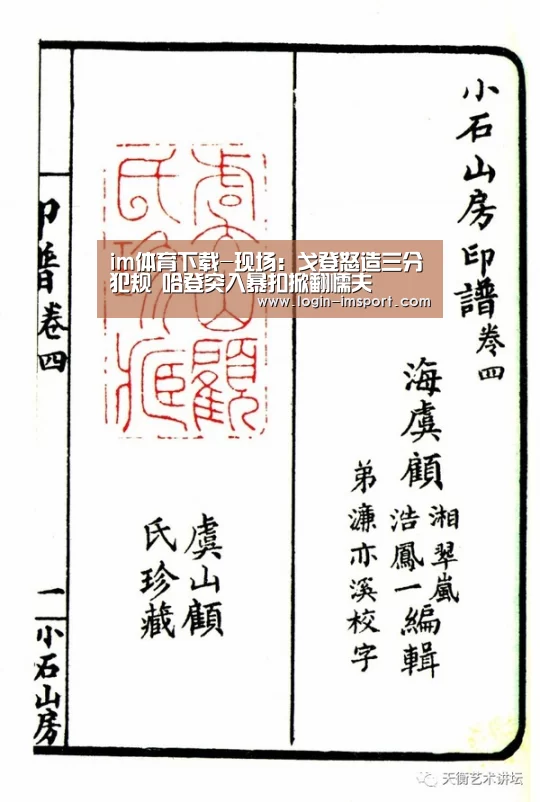 小石山房印譜卷四
海虞顧
湘翠嵐
浩鳳一
編輯
弟濂亦溪校字
虞山顧
氏珍藏
虞山顧
氏珍藏
印譜卷四
一
小石山房
im体育下载-现场：戈登怒造三分
犯规 哈登突入暴扣掀翻懦夫
www.login-imsport.com
天衡艺术讲坛